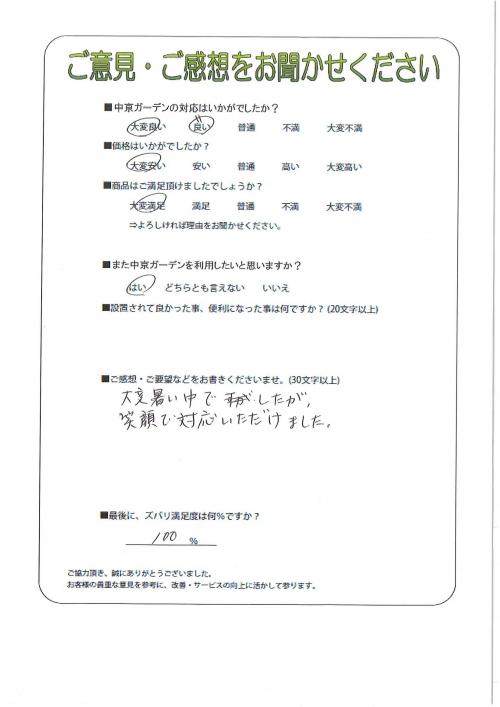 ご意見・ご感想をお聞かせください
■中京ガーデンの対応はいかがでしたか？
大変良い 良い 普通 不満 大変不満
■価格はいかがでしたか？
大変安い 安い 普通 高い 大変高い
■商品はご満足頂けましたでしょうか？
大変満足 満足 普通 不満 大変不満
⇒よろしければ理由をお聞かせください。
■また中京ガーデンを利用したいと思いますか？
はい どちらとも言えない いいえ
■設置されて良かった事、便利になった事は何ですか？(20文字以上)
■ご感想・ご要望などをお書きくださいませ。(30文字以上)
大変暑い中で したが、
笑顔で対応いただけました。
■最後に、ズバリ満足度は何％ですか？
100 ％
ご協力頂き、誠にありがとうございました。
お客様の貴重な意見を参考に、改善・サービスの向上に活かして参ります。